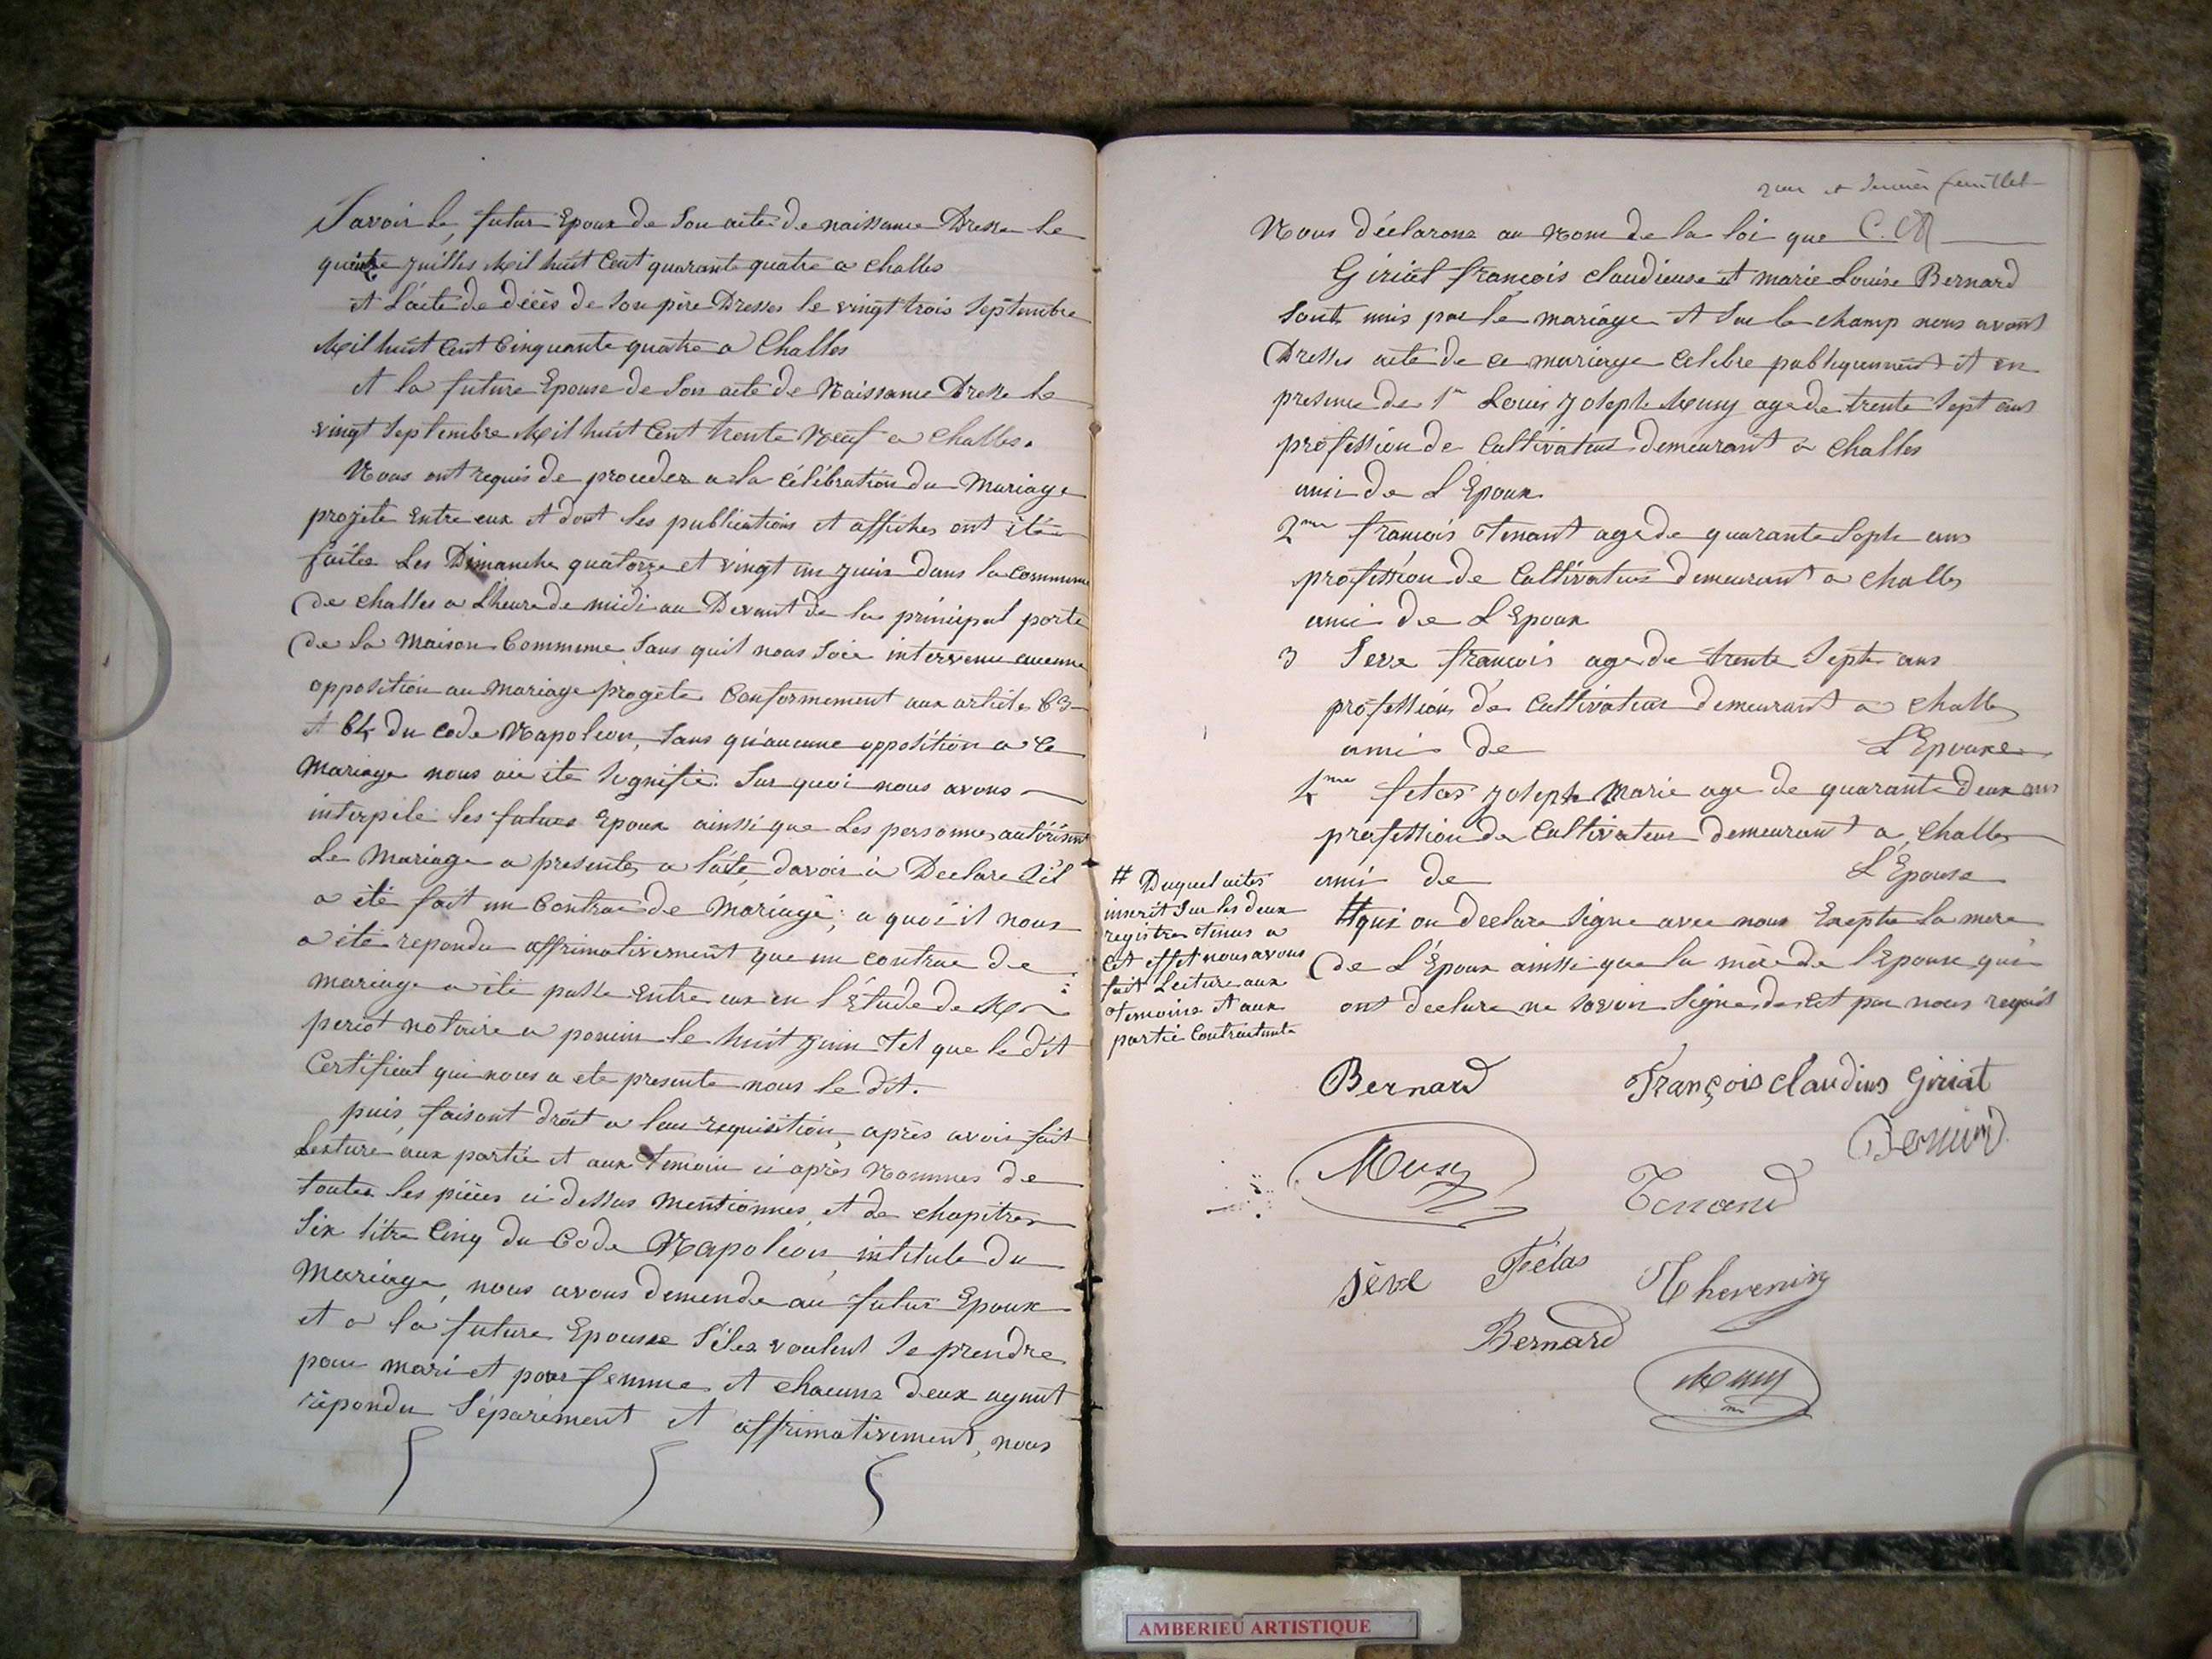 Savoir le, futur Epoux de Son acte de naissance Dresse le
quinze juilles Mil huit Cent quarante quatre a Challes
et L'acte de décès de Son père Dresses le vingt trois Septembre
Mil huit Cent Cinquante quatre a Challes
et la future Epouse de Son acte de Naissance Dresse le
vingt Septembre Mil huit Cent trente Neuf a Challes.
Nous ont requis de proceder a la célébration du Mariage
projete Entre eux et dont les publications et affiches ont été
faites Les Dimanche quatorze et vingt un juin dans la Commune
de Challes a L'heure de midi au Devant de la principal porte
de la Maison Commune Sans quil nous Soie intervenu aucunne
opposition au Mariage progete Conformement aux article 63
et 64 du Code Napoleon, Sans qu'aucune opposition a Ce
Mariage nous aie ete Signifie. Sur quoi nous avons
interpele les futures Epoux ainssi que Les personnes autorisant
Le Mariage a presentes a l'acte, davoir a Declare S'il
a été fait un Contrac de Mariage; a quoi il nous
a été repondu affrimativement que un contrac de
mariage a été passe Entre eux en l'Étude de M
periot notaire a poncin le huit juin Tel que le dit
Certificat qui nous a ete presente nous le dit.
puis, faisant droit a leur requisition, après avoir fait
Lecture aux partie et aux Temoin ci après Nommes de
toutes les pièces ci dessus Mentionnes, et de chapitre
Six titre Cinq du Code Napoleon, intitule Du
Mariage, nous avons demende au futur Epoux
et a la future Epousse S'iles voulent Se prendre
pour mari et pour femme et chacune deux ayant
répondu Séparément et affrimativement, nous
2me et dernier feuillet
Nous déclarons au Nom de la loi que C.
Giriat françois claudieuse et marie Louise Bernard
Sont unis par le mariage et Sur le champ nous avont
Dresses acte de ce mariage Celebre publiquement et en
presence de 1er Louis Joseph Musy age de trente Sept ans
profession de Cultivateur demeurant a Challes
ami de L'Epoux
2me françois Tenant age de quarante Septe ans
profession de Cultivateur demeurant a Challes
ami de L'Epoux
3 Seve françois age de trente Septe ans
profession de Cultivateur demeurant a Challes
ami de L'Epouxe
4me fetas Joseph Marie age de quarante deux ans
profession de Cultivateur demeurant a Challes
ami de L'Epouse
# qui on declare Signe avec nous Exepte la mere
de L'Epoux ainssi que la mère de l'Epouse qui
ont declare ne Savoir Signe de cet par nous requit
# Duquel actes
inscrit Sur les deux
registre Tenus a
Cet effet nous avons
fait Lecture aux
Temoins et aux
partie Contractante
Bernard François claudius Giriat
Bernard
Musy Tenand
Sève Fétas Thevenin
Bernard
Musy
AMBERIEU ARTISTIQUE